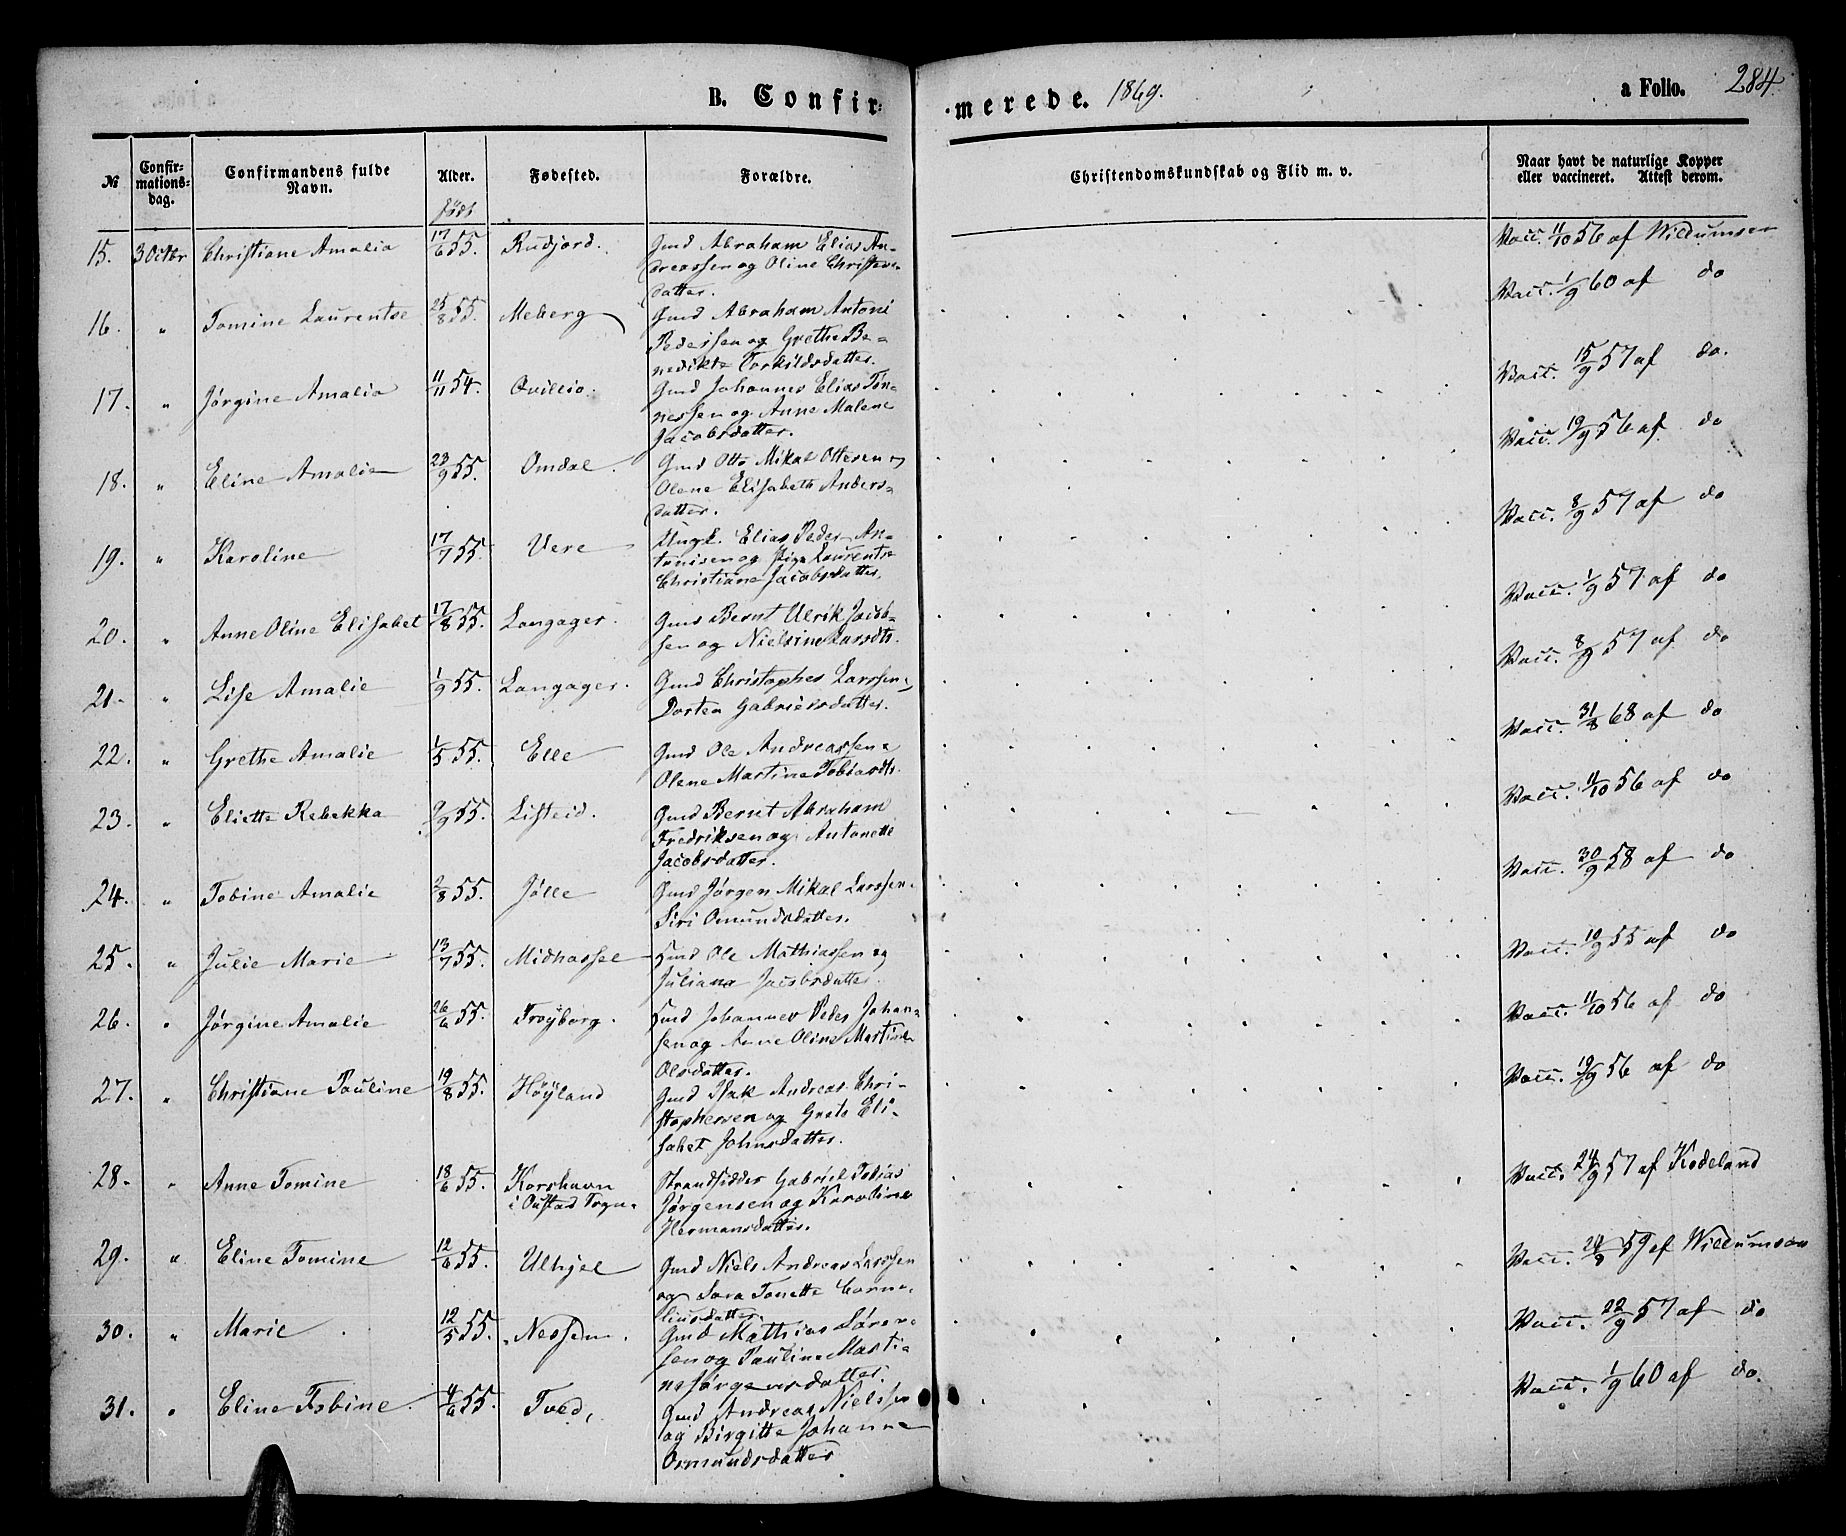 B. Confir-
merede. 1869.
a Folio. 284.
№
Confir-
mations-
dag.
Confirmandens fulde
Navn.
Alder.
født
Fødested.
Forældre.
Christendomskundskab og Flid m. v.
Naar havt de naturlige Kopper
eller vaccineret. Attest derom.
15. 3 Octbr Christiane Amalia 17/6 55. Rudjord. Gmd Abraham Elias An-
dreassen og Oline Christens-
datter.
Vacc. 11/10 56 af Wildumsen
16. " Tomine Laurentse 25/8 55. Meberg Gmd Abraham Antoni
Pedersen og Grethe Be-
nedikte Torkildsdatter.
Vacc. 1/9 60 af do
17. " Jørgine Amalia 11/11 54. Qvillio. Gmd Johannes Elias Tøn-
nessen og Anne Malene
Jacobsdatter.
Vacc. 15/9 57 af do.
18. " Eline Amalie 23/9 55. Omdal. Gmd Otto Mikal Ottesen og
Olene Elisabeth Anders-
datter.
Vacc. 19/9 56 af do
19. " Karoline 17/7 55. Vere Ungk. Elias Peder An-
tonisen og Pige Laurentse
Christiane Jacobsdatter.
Vacc. 8/9 57 af do
20. " Anne Oline Elisabet 17/8 55. Langager. Gmd Bernt Ulrik Jacob-
sen og Nielsine Larsdtr.
Vacc. 1/9 57. af do
21. " Lise Amalie 1/9 55. Langager. Gmd Christopher Larssen og
Dorten Gabrielsdatter.
Vacc. 8/9 57 af do
22. " Grethe Amalie 1/5 55. Elle Gmd Ole Andreassen og
Olene Martine Tobiasdtr.
Vacc. 31/8 68 af do
23. " Eliette Rebekka 9/9 55. Listeid. Gmd Bernt Abraham
Fredriksen og Antonette
Jacobsdatter.
Vacc. 11/10 56 af do
24. " Tobine Amalie 2/8 55. Jølle Gmd Jørgen Mikal Larssen.
Siri Omundsdatter.
Vacc. 30/9 58 af do
25. " Julie Marie 13/7 55. Midhassel Gmd Ole Mathiassen og
Juliana Jacobsdatter.
Vacc. 10/9 55 af do
26. " Jørgine Amalie 26/6 55. Frøyborg. Gmd Johannes Peder Johan-
sen og Anne Oline Martine
Olsdatter.
Vacc. 11/10 56 af do
27. " Christiane Pauline 19/8 55. Høyland Gmd Isak Andreas Chri-
stophersen og Grete Eli-
sabet Johnsdatter.
Vacc. 19/9 56 af do
28. " Anne Tomine 18/6 55. Korshavn
i Oustad Sogn.
Strandsidder Gabriel Tobias
Jørgensen og Karoline
Hermansdatter.
Vacc. 24/9 57 af Kodeland
29. " Eline Tomine 12/6 55. Ulhjel Gmd Niels Andreas Larssen
og Sara Tonette Corne-
liusdatter.
Vacc. 24/9 59 af Wildumsen
30. " Marie 12/5 55. Nesseim. Gmd Mathias Søren-
sen og Pauline Marti-
ne Jørgensdatter.
Vacc. 22/9 57 af do
31. " Eline Tobine. 4/6 55. Tved, Gmd Andreas Nielssen
og Birgitte Johanne
Osmundsdatter
Vacc. 1/9 60 af do.